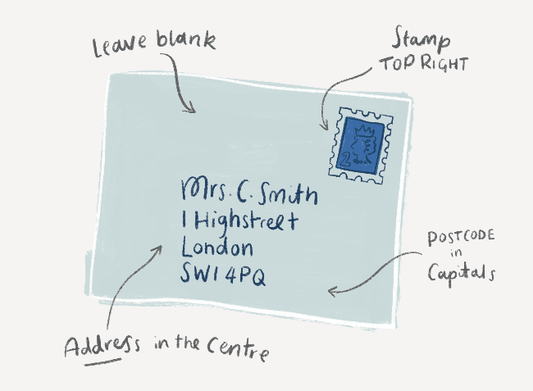 Leave blank
Stamp
TOP RIGHT
2
Mrs. C. Smith
1 Highstreet
London
SW1 4PQ
POSTCODE
in
Capitals
Address in the Centre